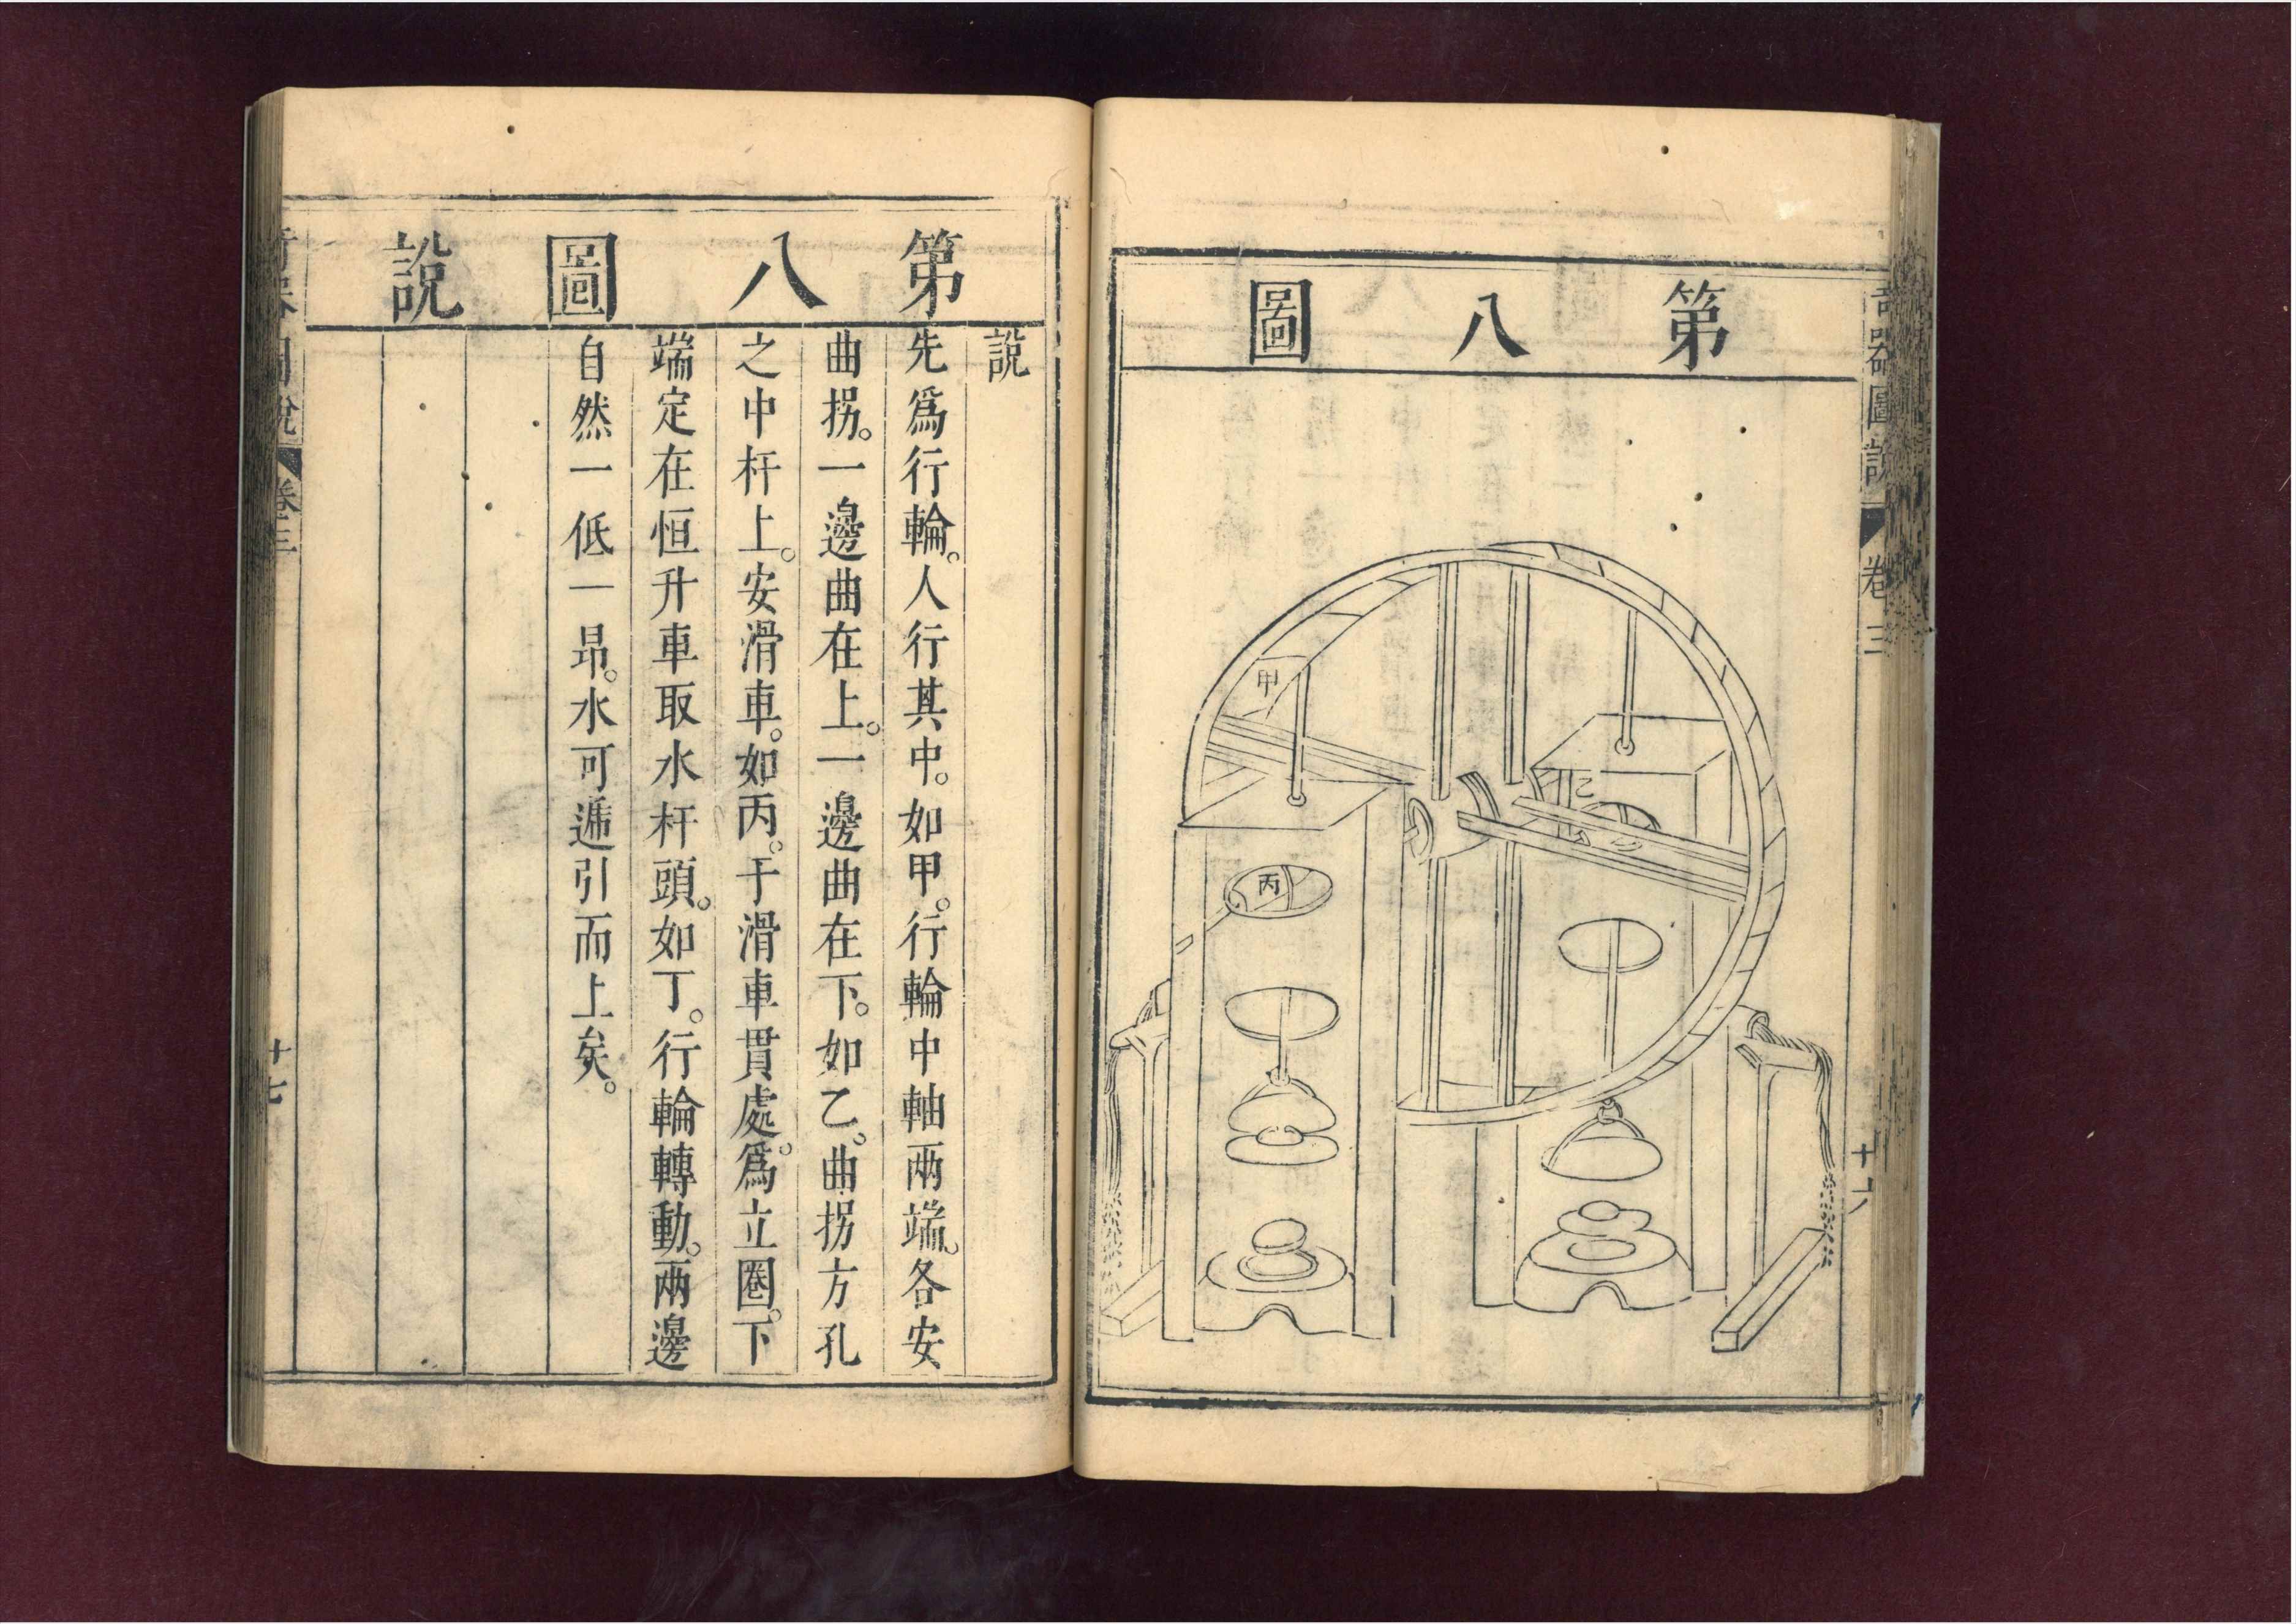 第八圖
奇器圖說
卷三
十六
甲
乙
丙
第八圖說
說
先爲行輪。人行其中。如甲。行輪中軸兩端。各安
曲拐。一邊曲在上。一邊曲在下。如乙。曲拐方孔
之中杆上。安滑車。如丙。于滑車貫處。爲立圈。下
端定在恒升車取水杆頭。如丁。行輪轉動。兩邊
自然一低一昂。水可遞引而上矣。
卷三
十七